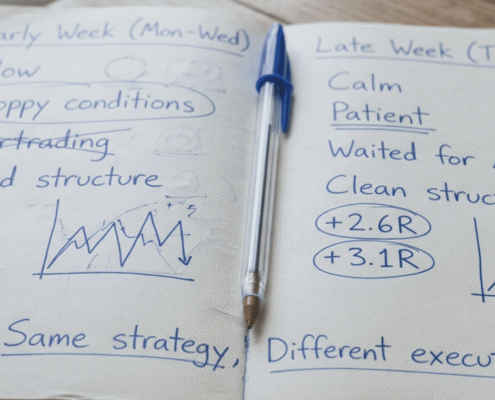 arly Week (Mon-Wed)
low
oppy conditions
ertrading
d structure
Same strategy,
Late Week (T
Calm
Patient
Waited for
Clean struc
+2.6R
+3.1R
Different execu